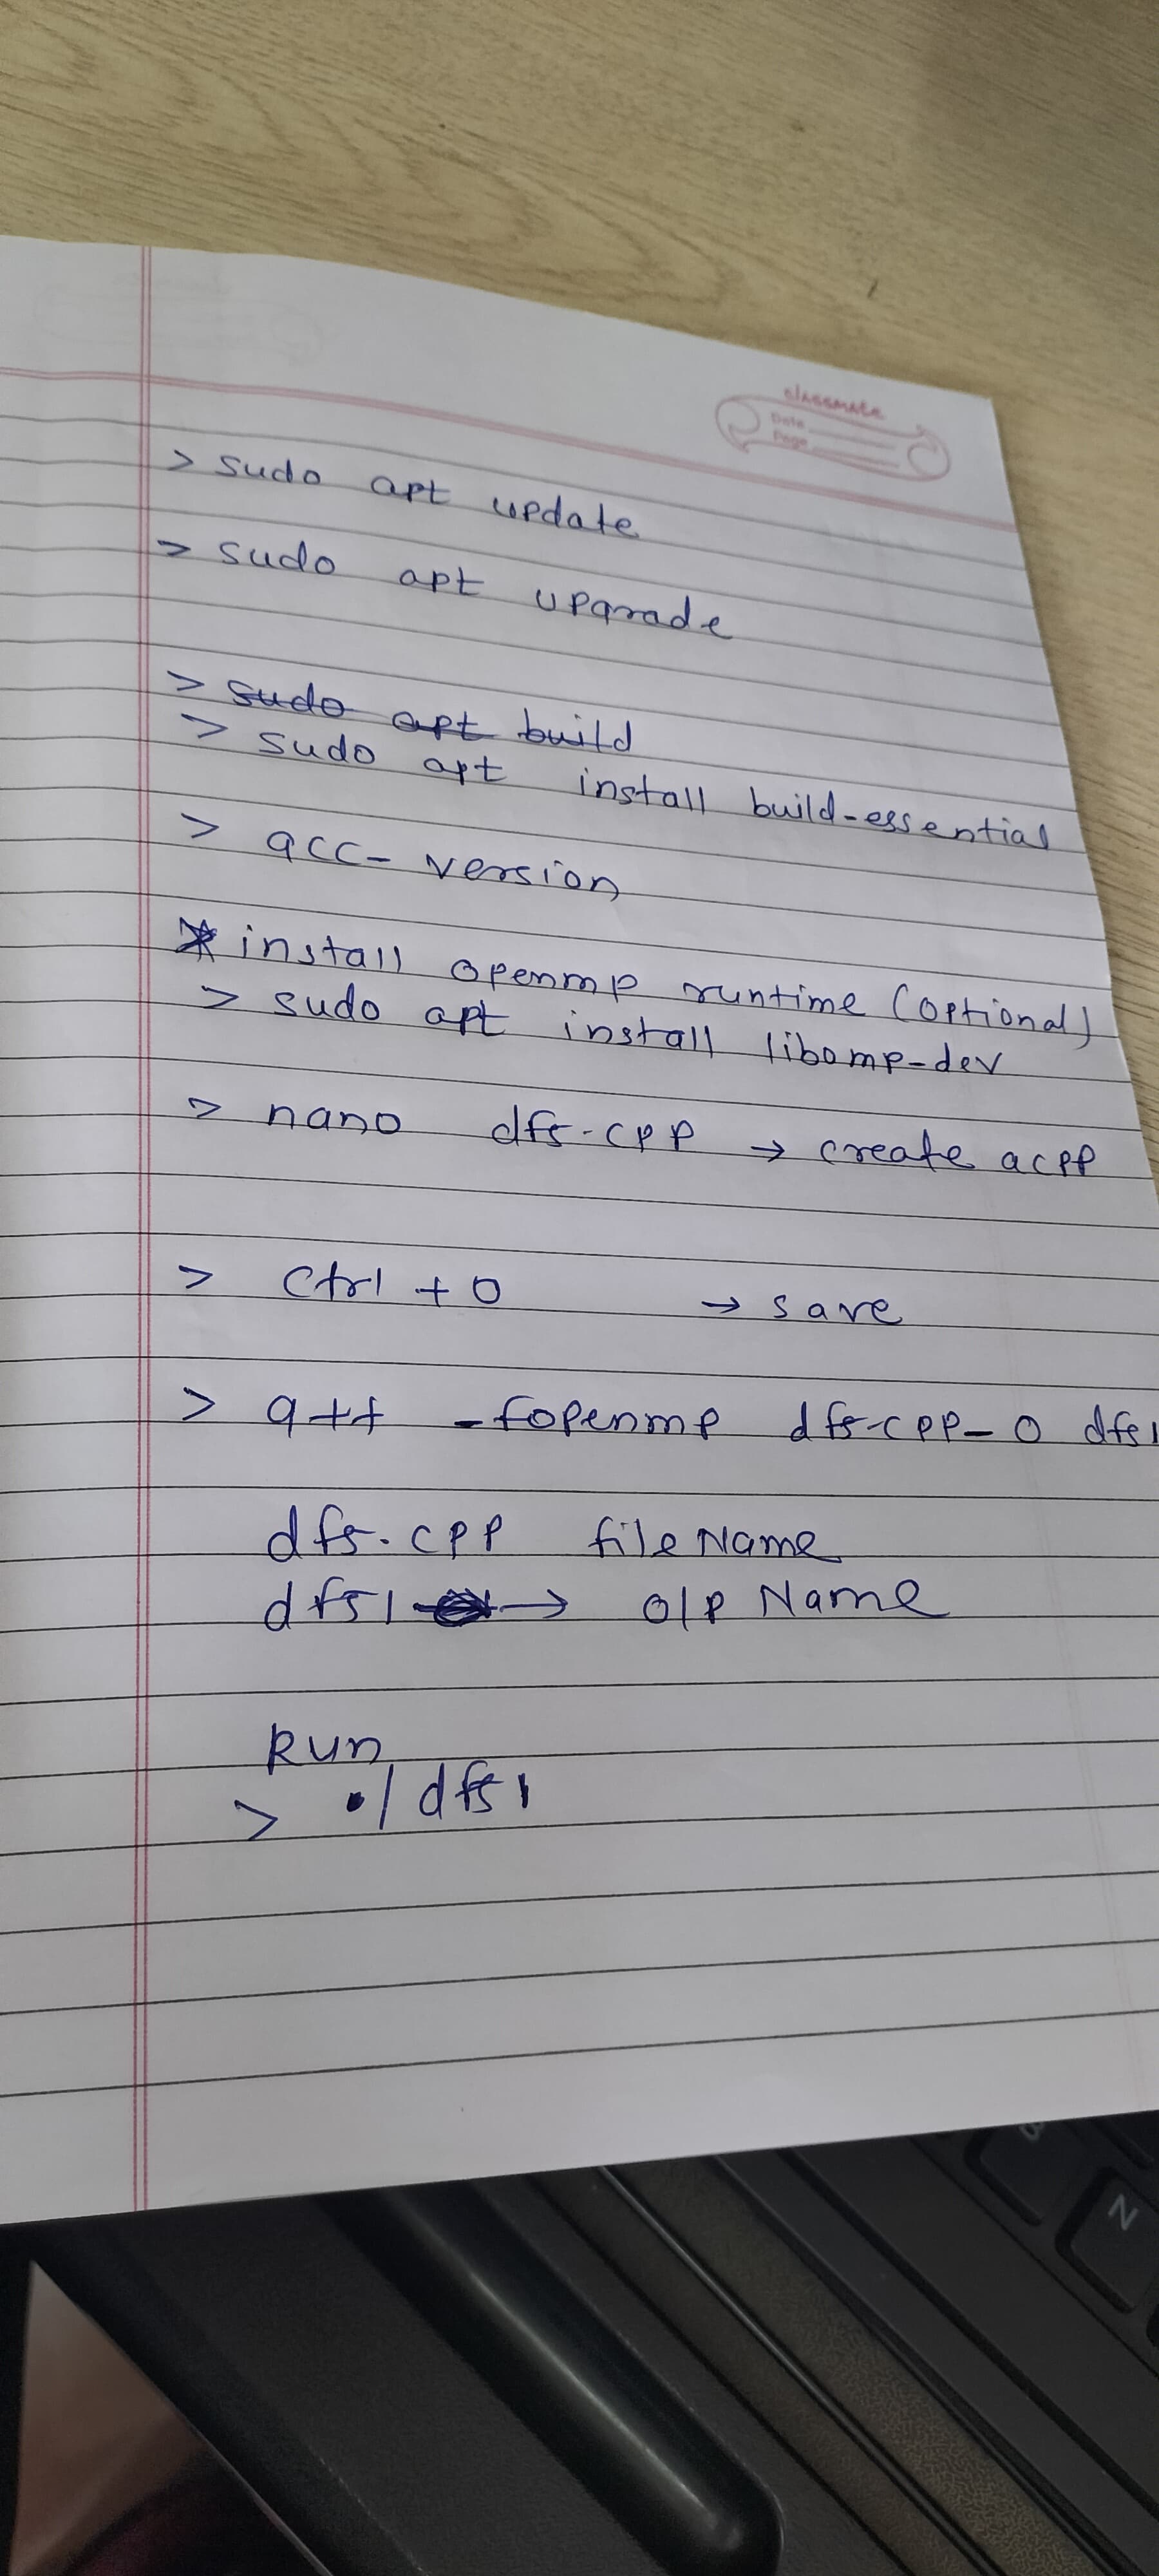 classmate
Date
Page
> sudo apt update
> sudo apt upgrade
> sudo apt build
> sudo apt install build-essential
> gcc- version
* install openmp runtime (optional)
> sudo apt install libomp-dev
> nano dfs.cpp → create a cpp
> ctrl + O → save
> g++ -fopenmp dfs.cpp -o dfs1
dfs.cpp file Name
dfs1 → o/p Name
Run
> ./dfs1
N